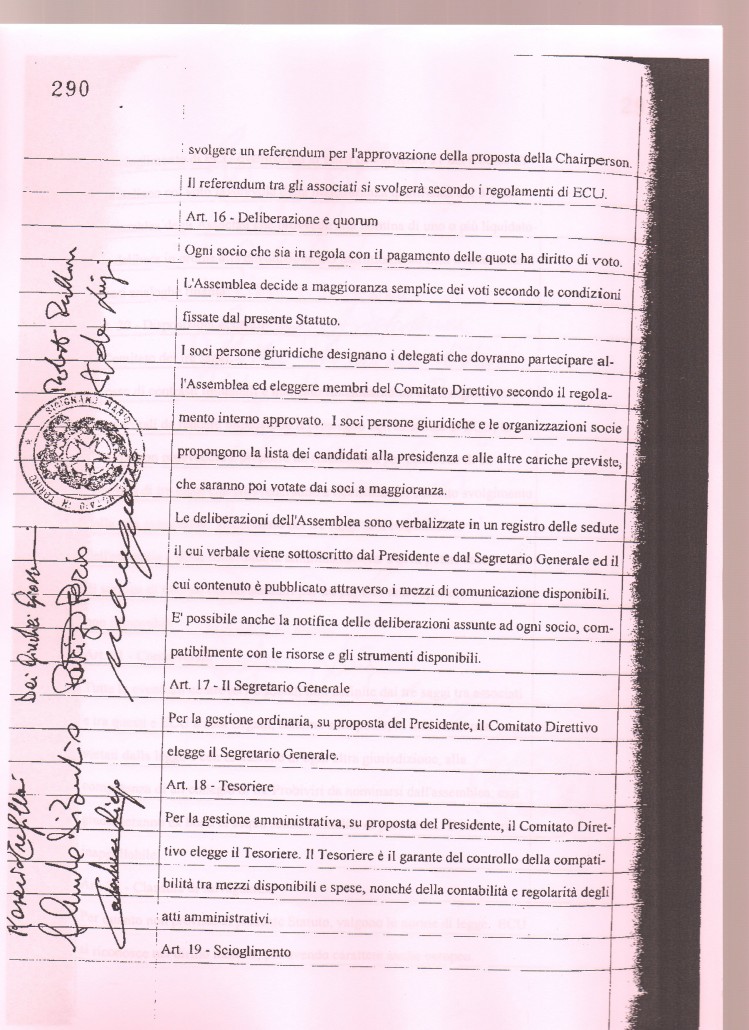 290
svolgere un referendum per l'approvazione della proposta della Chairperson.
Il referendum tra gli associati si svolgerà secondo i regolamenti di ECU.
Art. 16 - Deliberazione e quorum
Ogni socio che sia in regola con il pagamento delle quote ha diritto di voto.
L'Assemblea decide a maggioranza semplice dei voti secondo le condizioni
fissate dal presente Statuto.
I soci persone giuridiche designano i delegati che dovranno partecipare al-
l'Assemblea ed eleggere membri del Comitato Direttivo secondo il regola-
mento interno approvato. I soci persone giuridiche e le organizzazioni socie
propongono la lista dei candidati alla presidenza e alle altre cariche previste,
che saranno poi votate dai soci a maggioranza.
Le deliberazioni dell'Assemblea sono verbalizzate in un registro delle sedute
il cui verbale viene sottoscritto dal Presidente e dal Segretario Generale ed il
cui contenuto è pubblicato attraverso i mezzi di comunicazione disponibili.
E' possibile anche la notifica delle deliberazioni assunte ad ogni socio, com-
patibilmente con le risorse e gli strumenti disponibili.
Art. 17 - Il Segretario Generale
Per la gestione ordinaria, su proposta del Presidente, il Comitato Direttivo
elegge il Segretario Generale.
Art. 18 - Tesoriere
Per la gestione amministrativa, su proposta del Presidente, il Comitato Diret-
tivo elegge il Tesoriere. Il Tesoriere è il garante del controllo della compati-
bilità tra mezzi disponibili e spese, nonché della contabilità e regolarità degli
atti amministrativi.
Art. 19 - Scioglimento
Roberto
SICIGNANO MARIO
NOTAIO IN TORINO
Patrizio